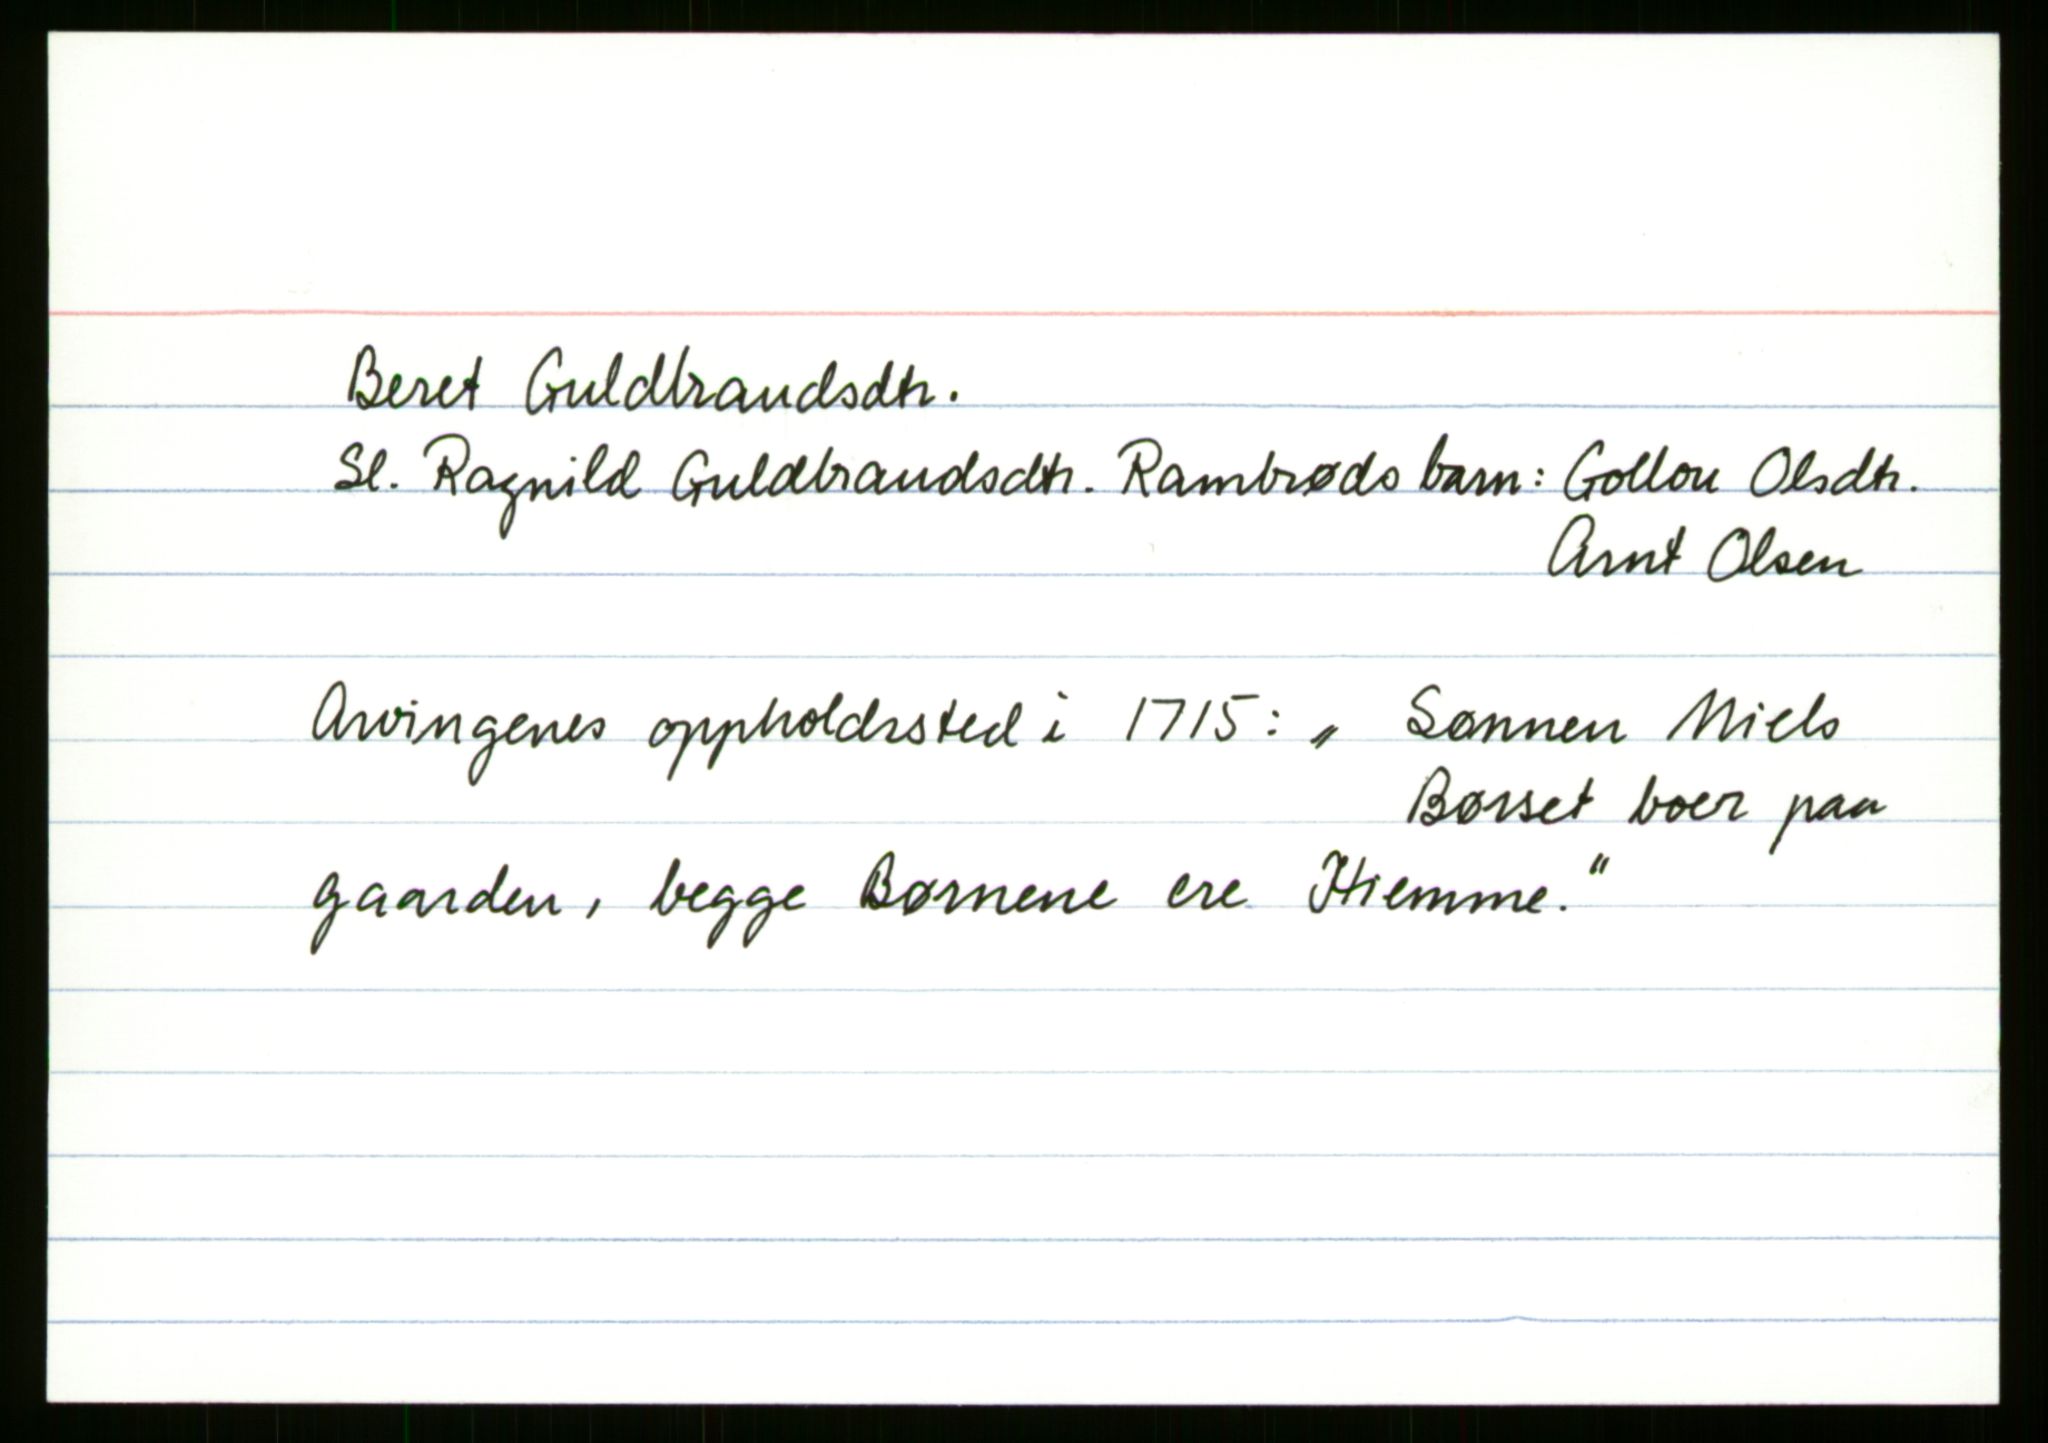 Beret Guldbrandsdtr.
Sl. Ragnild Guldbrandsdtr. Rambrøds barn: Gollou Olsdtr.
Arnt Olsen
Arvingenes oppholdssted i 1715: „ Sønnen Niels
Børset boer paa
gaarden, begge Børnene ere Hiemme."